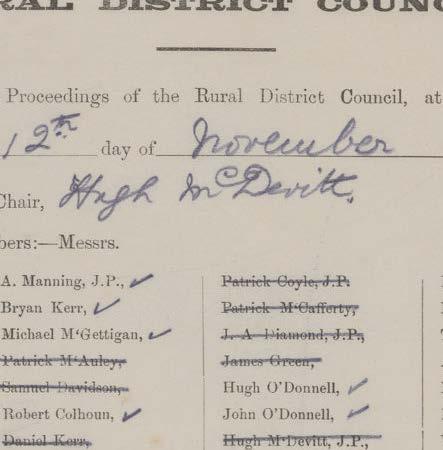 RAL DISTRICT COUNC
Proceedings of the Rural District Council, at
12th day of November
Chair, Hugh McDevitt.
bers:—Messrs.
A. Manning, J.P.,
Bryan Kerr,
Michael M'Gettigan,
Patrick M'Auley,
Samuel Davidson,
Robert Colhoun,
Daniel Kerr,
Patrick Coyle, J.P.
Patrick M'Cafferty,
J. A. Diamond, J.P.,
James Green,
Hugh O'Donnell,
John O'Donnell,
Hugh M'Devitt, J.P.,